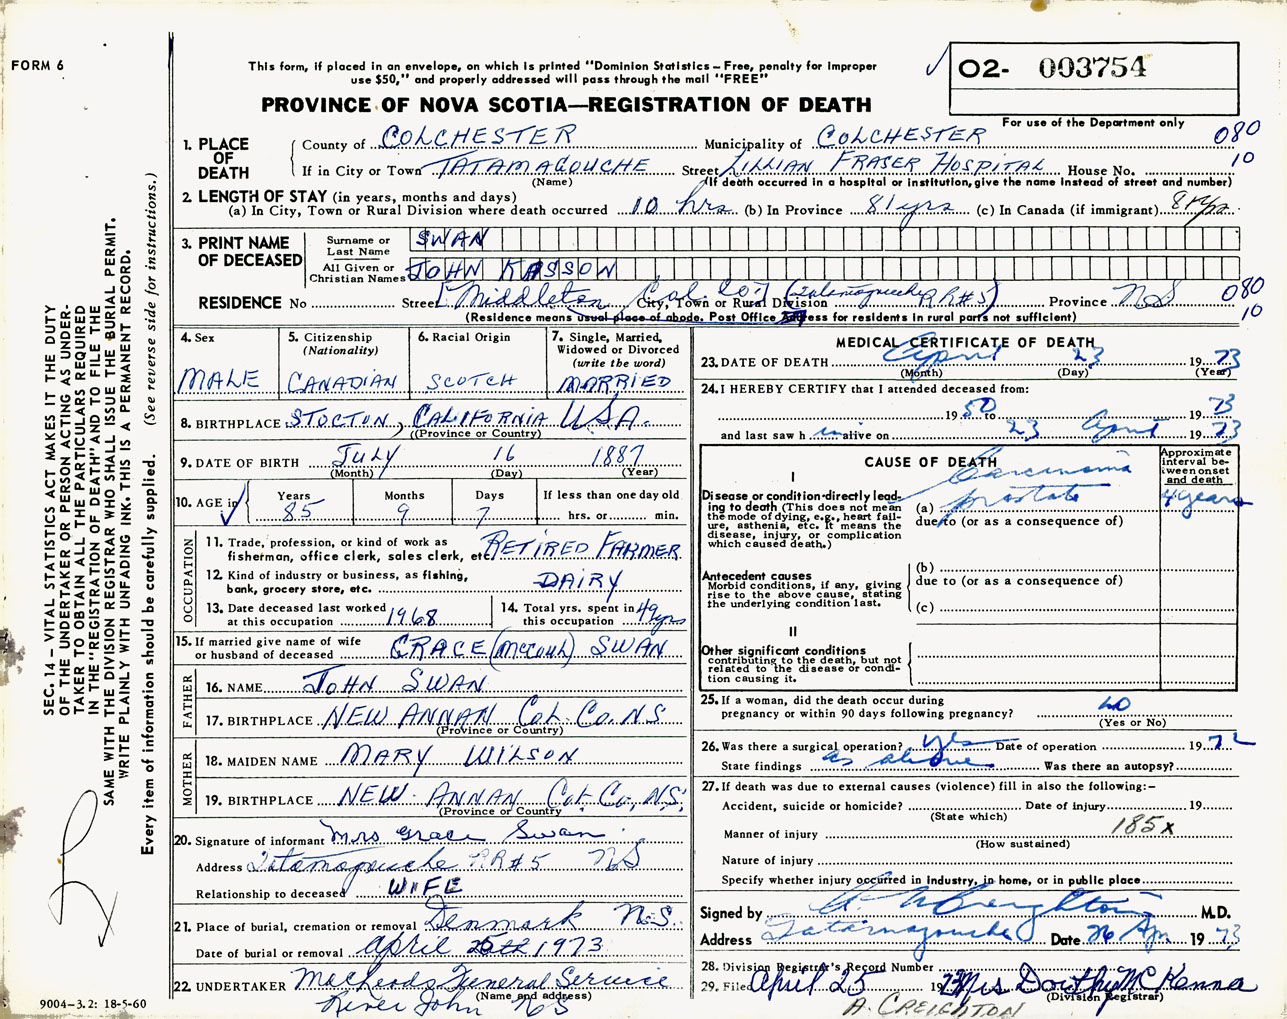 FORM 6
This form, if placed in an envelope, on which is printed "Dominion Statistics – Free, penalty for improper
use $50," and properly addressed will pass through the mail "FREE"
O2- 003754
PROVINCE OF NOVA SCOTIA—REGISTRATION OF DEATH
For use of the Department only
1. PLACE OF DEATH
County of COLCHESTER Municipality of COLCHESTER 080
If in City or Town TATAMAGOUCHE Street LILLIAN FRASER HOSPITAL House No. 10
(Name) (If death occurred in a hospital or institution, give the name instead of street and number)
2. LENGTH OF STAY (in years, months and days)
(a) In City, Town or Rural Division where death occurred 10 hrs (b) In Province 81 yrs (c) In Canada (if immigrant) 81 yrs
3. PRINT NAME OF DECEASED
Surname or Last Name SWAN
All Given or Christian Names JOHN KASSON
RESIDENCE No Street Middleton Col. Co. City, Town or Rural Division (Tatamagouche RR#5) Province NS 080
(Residence means usual place of abode. Post Office Address for residents in rural parts not sufficient) 10
4. Sex
MALE
5. Citizenship
(Nationality)
CANADIAN
6. Racial Origin
SCOTCH
7. Single, Married,
Widowed or Divorced
(write the word)
MARRIED
8. BIRTHPLACE STOCTON, CALIFORNIA USA.
(Province or Country)
9. DATE OF BIRTH JULY 16 1887
(Month) (Day) (Year)
10. AGE in
Years Months Days If less than one day old
85 9 7 hrs. or min.
OCCUPATION
11. Trade, profession, or kind of work as
fisherman, office clerk, sales clerk, etc. RETIRED FARMER
12. Kind of industry or business, as fishing,
bank, grocery store, etc. DAIRY
13. Date deceased last worked
at this occupation 1968
14. Total yrs. spent in
this occupation 49 yrs
15. If married give name of wife
or husband of deceased GRACE (McCoul) SWAN
FATHER
16. NAME JOHN SWAN
17. BIRTHPLACE NEW ANNAN COL. CO. NS
(Province or Country)
MOTHER
18. MAIDEN NAME MARY WILSON
19. BIRTHPLACE NEW ANNAN Col. Co, N.S.
(Province or Country
20. Signature of informant Mrs Grace Swan
Address Tatamagouche RR#5 NS
Relationship to deceased WIFE
21. Place of burial, cremation or removal Denmark N.S.
Date of burial or removal April 26th 1973
22. UNDERTAKER MacLeods Funeral Service
(Name and address)
River John NS
MEDICAL CERTIFICATE OF DEATH
23. DATE OF DEATH April 23 1973
(Month) (Day) (Year)
24. I HEREBY CERTIFY that I attended deceased from:
1950 to 1973
and last saw him alive on 23 April 1973
CAUSE OF DEATH
Approximate interval between onset and death
I
Disease or condition directly leading to death (This does not mean
the mode of dying, e.g., heart failure, asthenia, etc. It means the
disease, injury, or complication
which caused death.)
Carcinoma
(a) prostate 4 years
due to (or as a consequence of)
Antecedent causes
Morbid conditions, if any, giving
rise to the above cause, stating
the underlying condition last.
(b)
due to (or as a consequence of)
(c)
II
Other significant conditions
contributing to the death, but not
related to the disease or condition causing it.
25. If a woman, did the death occur during
pregnancy or within 90 days following pregnancy? no
(Yes or No)
26. Was there a surgical operation? yes Date of operation 1972
State findings as above Was there an autopsy?
27. If death was due to external causes (violence) fill in also the following:-
Accident, suicide or homicide? Date of injury 19
(State which)
185x
Manner of injury
(How sustained)
Nature of injury
Specify whether injury occurred in industry, in home, or in public place
Signed by A Creighton M.D.
Address Tatamagouche Date 26 Apr 1973
28. Division Registrar's Record Number
29. Filed April 25 1973 Mrs Dorothy McKenna
(Division Registrar)
A. CREIGHTON
SEC. 14 – VITAL STATISTICS ACT MAKES IT THE DUTY
OF THE UNDERTAKER OR PERSON ACTING AS UNDER-
TAKER TO OBTAIN ALL THE PARTICULARS REQUIRED
IN THE "REGISTRATION OF DEATH" AND TO FILE THE
SAME WITH THE DIVISION REGISTRAR WHO SHALL ISSUE THE BURIAL PERMIT.
WRITE PLAINLY WITH UNFADING INK. THIS IS A PERMANENT RECORD.
Every item of information should be carefully supplied. (See reverse side for instructions.)
9004-3.2: 18-5-60